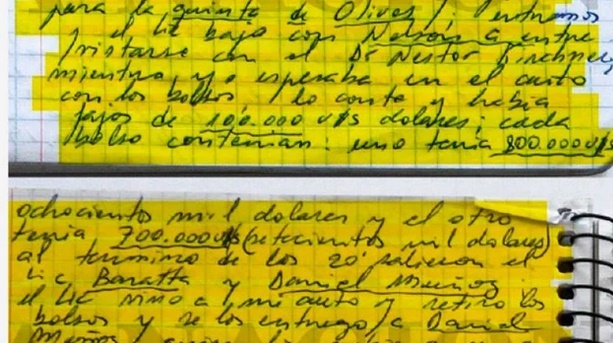 para la quinta de Olivos / entramos
el Lic bajo con Nelson a entre
/vistarse con el Dr Nestor Kirchner,
mientras yo esperaba en el auto
con los bolsos / lo conte y habia
fajos de 100.000 u$s dolares; cada
/bolso contenian: uno tenia 800.000 u$s
ochocientos mil dolares y el otro
tenia 700.000 u$s (setecientos mil dolares)
al termino de los 20' salieron el
Lic Baratta y Daniel Muñoz
el Lic vino a / mi auto y retiro los
bolsos y se los entrego / a Daniel
Muñoz